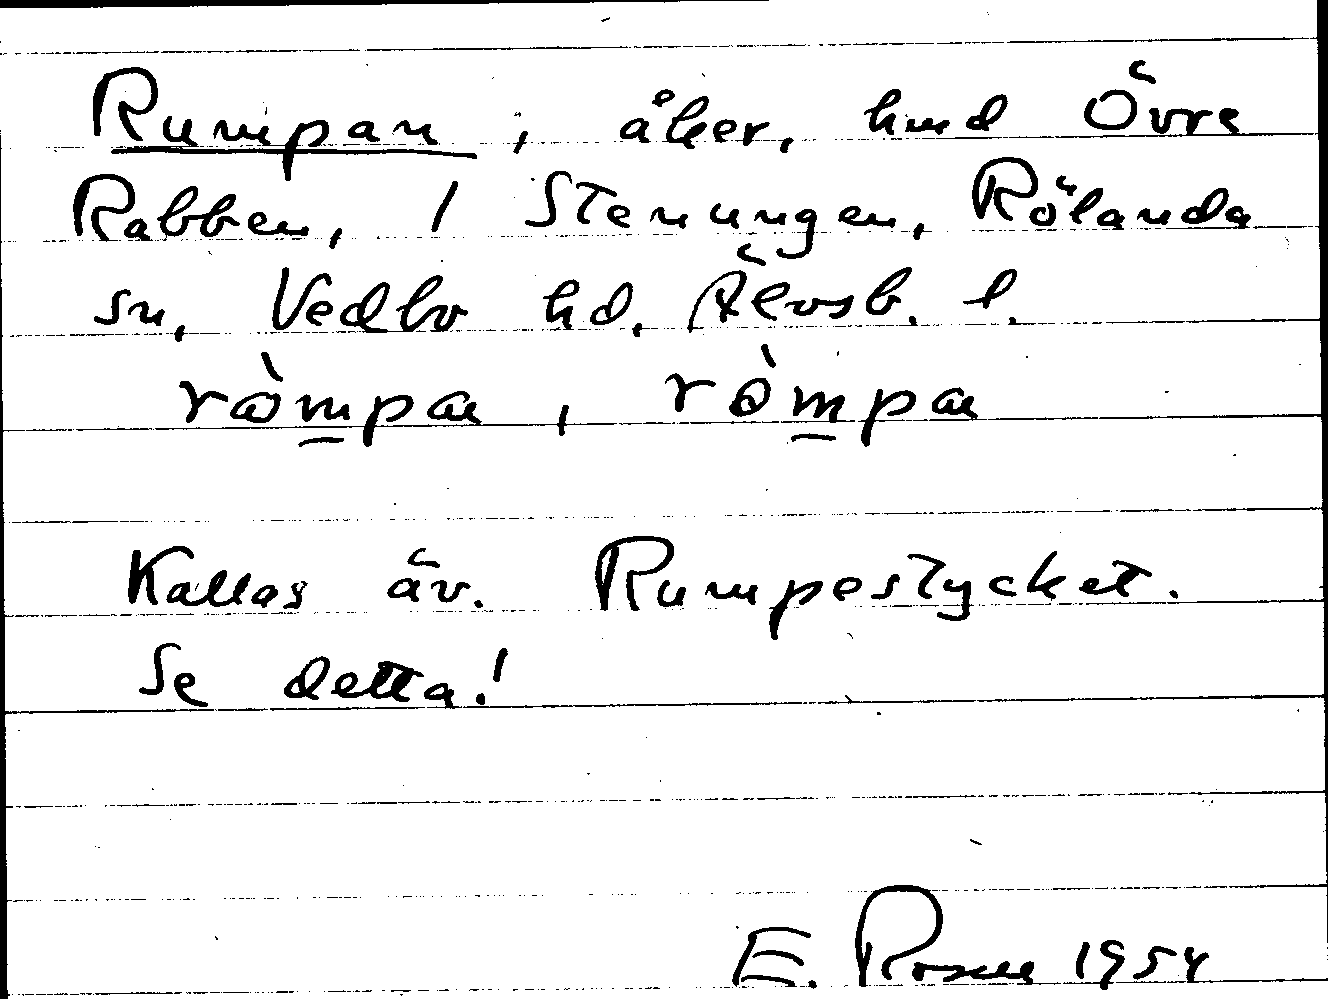 Rumpan, åker, hmd Övre
Rabben, 1 Stenungen, Rölanda
sn, Vedbo hd, Älvsb. l.
ròmpa,
Kallas äv. Rumpestycket.
Se detta!
E. Rosén 1954